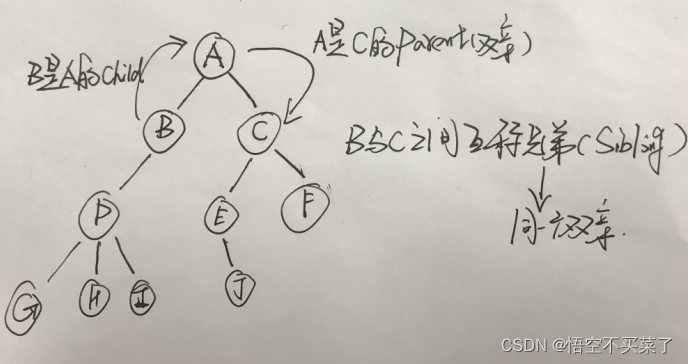 A
B是A的Child
A是C的Parent(双亲)
B
C
B与C之间互称兄弟(Sibling)
同一双亲.
D
E
F
G
H
I
J
CSDN @悟空不买菜了